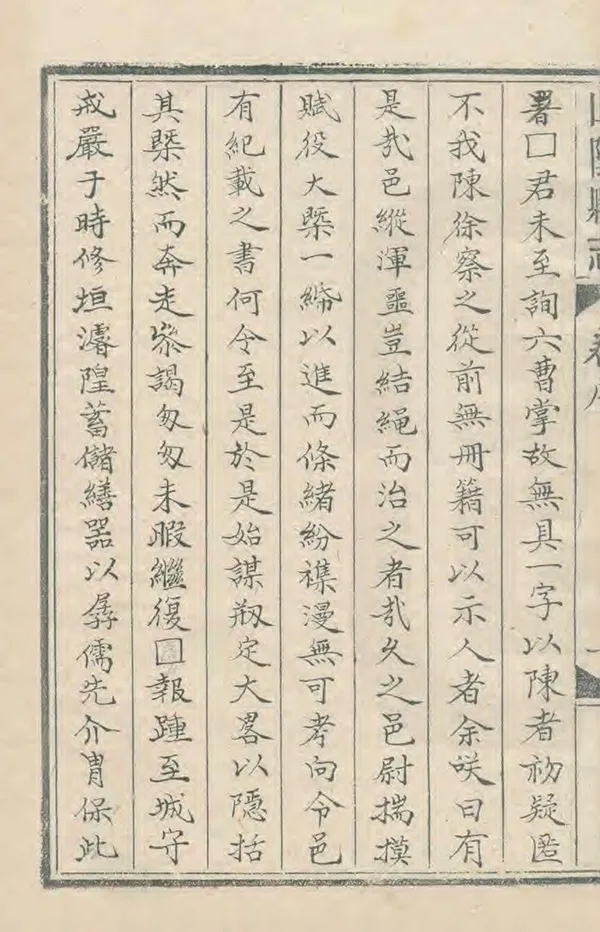 署□君未至詢六曹掌故無具一字以陳者初疑匿
不我陳徐察之從前無冊籍可以示人者余咲曰有
是㢤邑縱渾噩豈結繩而治之者㢤久之邑尉揣摸
賦役大槩一綈以進而條緒紛襍漫無可考向令邑
有紀載之書何令至是於是始謀剏定大畧以隱括
其槩然而奔走叅謁匆匆未暇繼復□報踵至城守
戒嚴于時修垣濬隍蓄儲繕器以孱儒先介胄保此